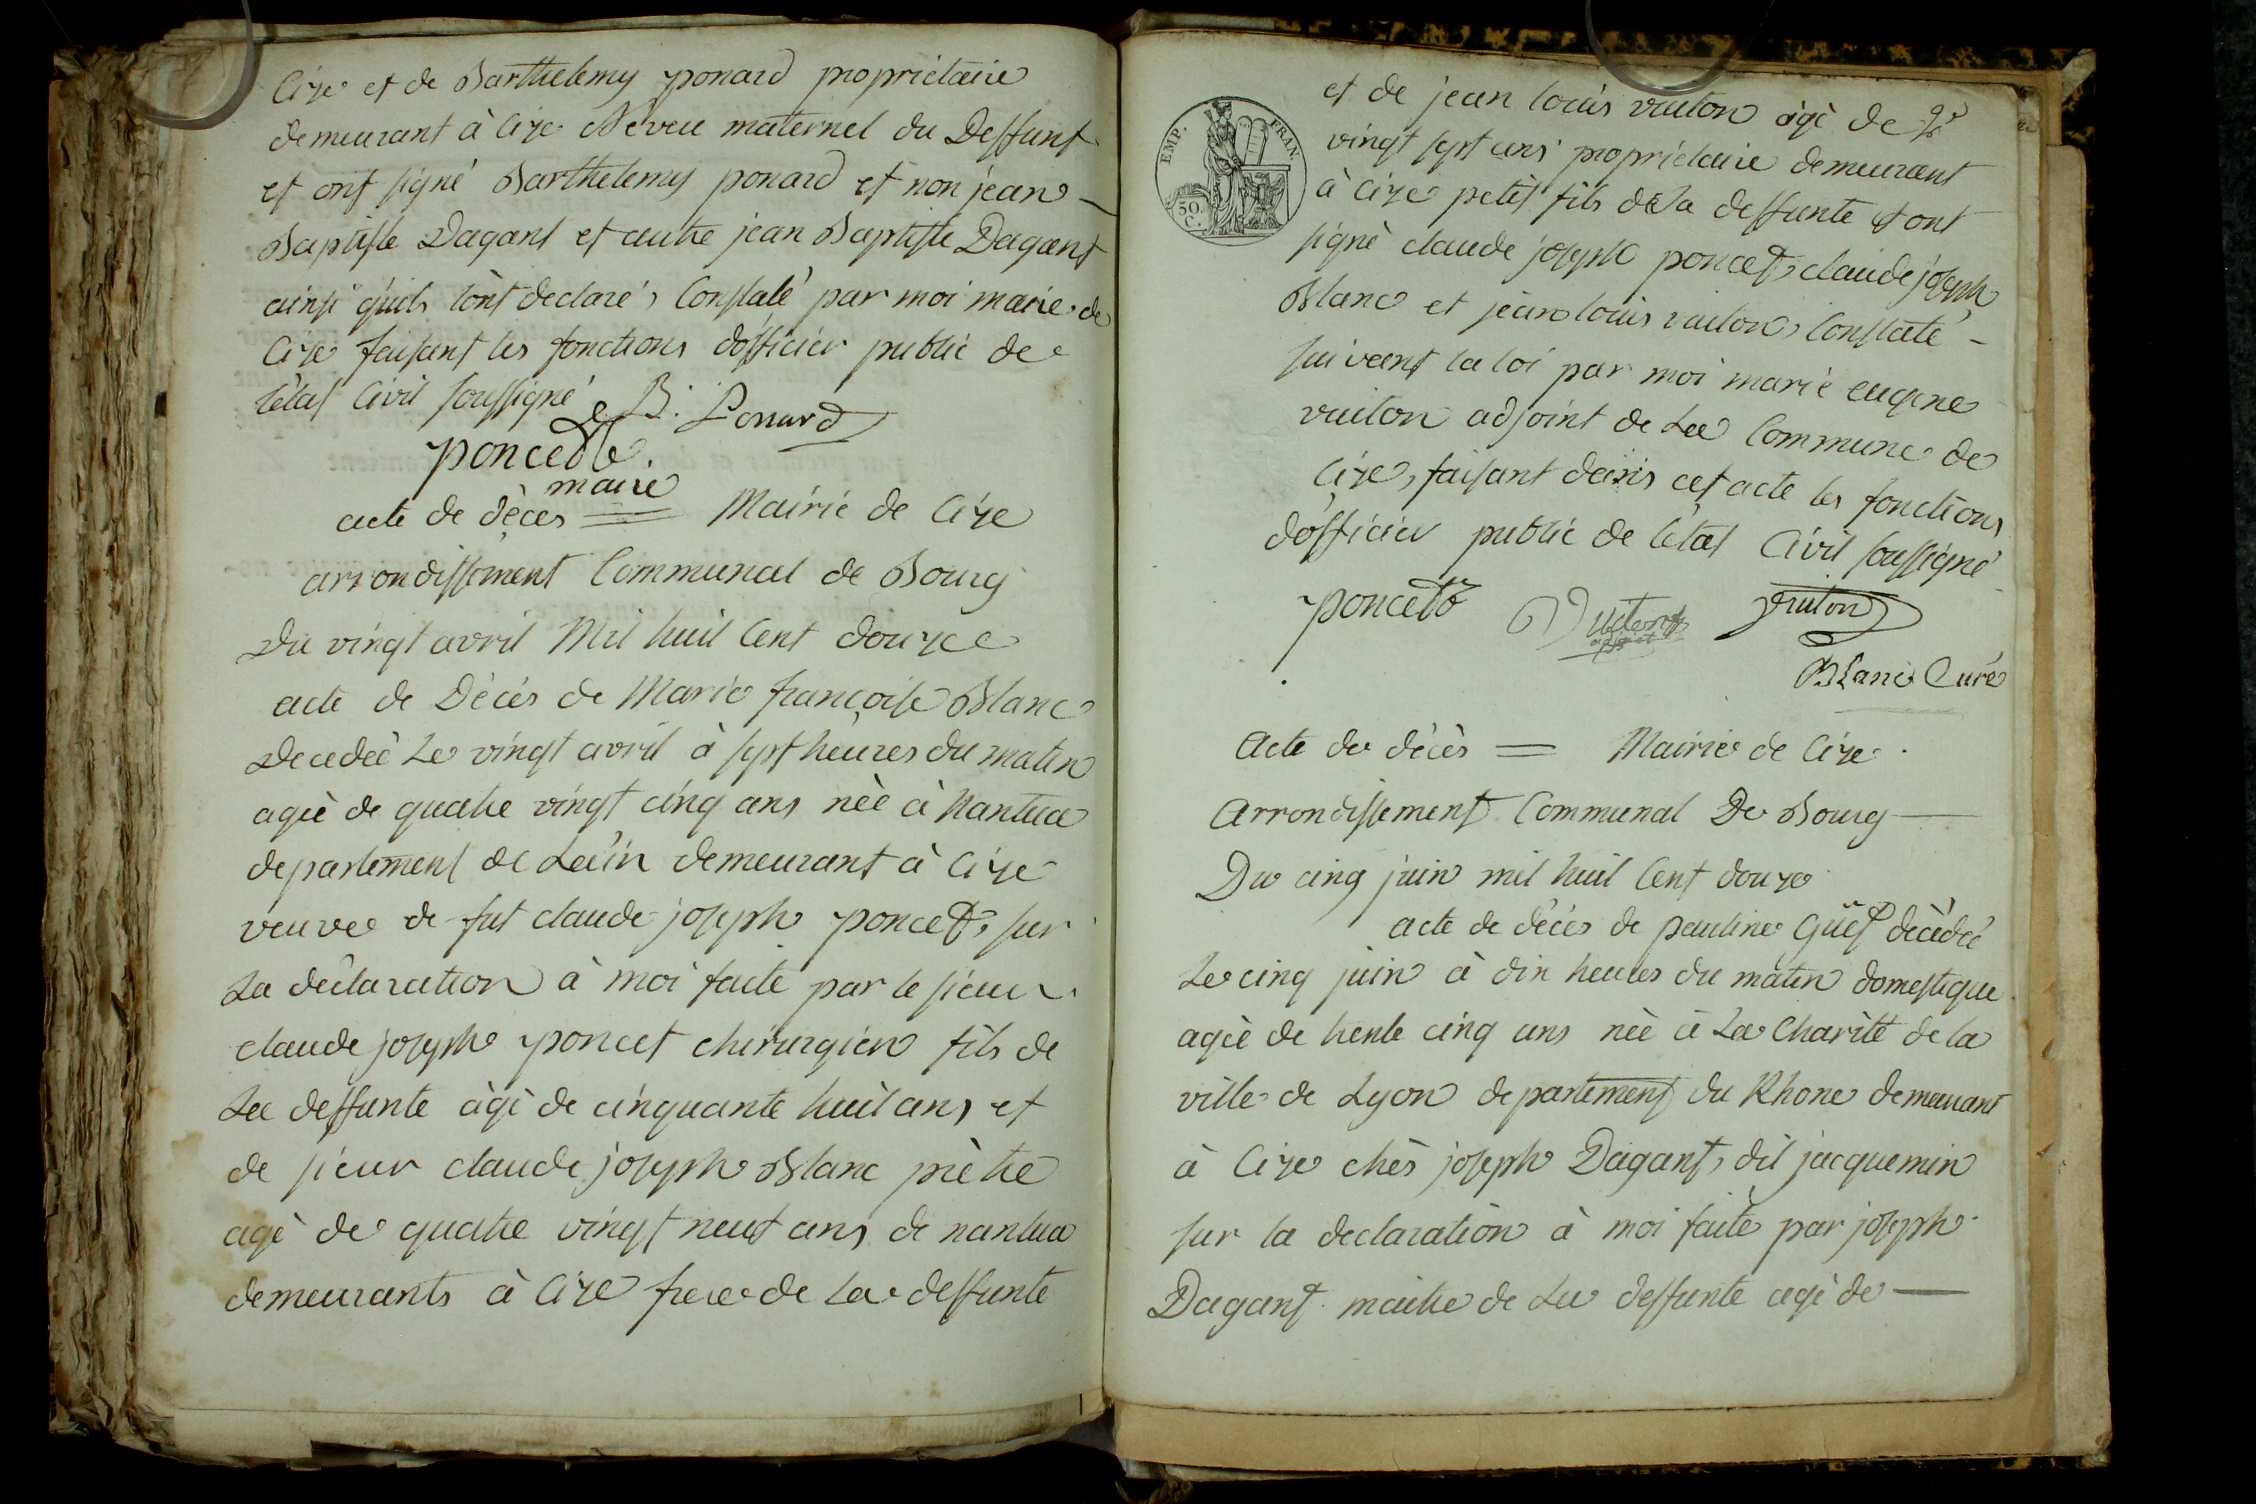 Cize et de Barthelemy ponard propriétaire
demeurant à Cize Neveu maternel du Deffunt
et ont signé Barthelemy ponard et non jean
Baptiste Dagant et autre jean Baptiste Dagant
ainsi quils lont declaré, Constaté par moi maire de
Cize faisant les fonctions dofficier public de
létat Civil soussigné B. Ponard
poncet
maire
acte de décès = Mairie de Cize
arrondissement Communal de Bourg
Du vingt avril Mil huit Cent douze
acte de Décés de Marie françoise Blanc
Decedeé Le vingt avril à sept heures du matin
ageé de quatre vingt cinq ans neé à Nantua
departement de Lain demeurant à Cize
veuve de fut claude joseph poncet, sur
La déclaration à moi faite par le sieur
claude joseph poncet chirurgien fils de
La deffunte agé de cinquante huit ans et
de sieur claude joseph Blanc prètre
agé de quatre vingt neuf ans de nantua
demeurants à Cize frere de La deffunte
EMP. FRAN.
50 C.
et de jean louis vuiton agé de
vingt sept ans propriétaire demeurant
à Cize petit fils de La deffunte & ont
signé claude joseph poncet, claude joseph
Blanc et jean louis vuiton, Constaté
suivant la loi par moi marie eugene
vuiton adjoint de La Commune de
Cize, faisant dans cet acte les fonctions
dofficier public de létat Civil soussigné
poncet Vuiton vuiton
adjoint
Blanc Curé
Acte de décès = Mairie de Cize
Arrondissement Communal De Bourg
Du cinq juin mil huit Cent douze
acte de décés de pauline Guët décédeé
Le cinq juin à dix heures du matin domestique
ageé de trente cinq ans neé à La Charité de la
ville de Lyon departement du Rhone demeurant
à Cize chès joseph Dagant, dit jacquemin
sur la declaration à moi faite par joseph
Dagant maitre de La deffunte agé de